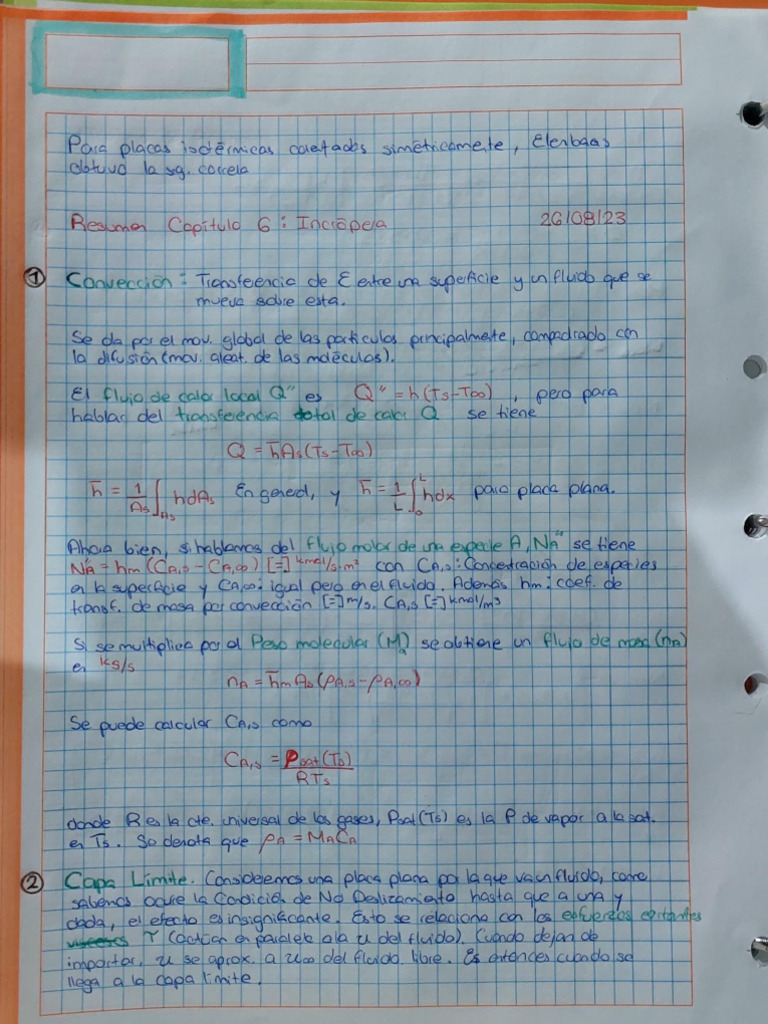 Para placas isotérmicas calentadas simétricamente, Elenbaas
obtuvo la sg. correla
Resumen Capítulo 6: Incropera 26/08/23
① Convección: Transferencia de E entre una superficie y un fluido que se
mueva sobre esta.
Se da por el mov. global de las partículas principalmente, comparado con
la difusión (mov. aleat. de las moléculas).
El flujo de calor local Q'' es Q'' = h(Ts-T∞), pero para
hablar del transferencia total de calor Q se tiene
Q = h̄As(Ts-T∞)
h̄ = 1/As ∫As h dAs En general, y h̄ = 1/L ∫₀ᴸ h dx para placa plana.
Ahora bien, si hablamos del flujo molar de una especie A, NA'' se tiene
NA'' = hm (CA,s - CA,∞) [=] kmol/s·m² con CA,s: Concentración de especies
en la superficie y CA,∞: igual pero en el fluido. Además hm: coef. de
transf. de masa por convección [=] m/s. CA,s [=] kmol/m³
Si se multiplica por el Peso molecular (MA) se obtiene un flujo de masa (nA)
en kg/s
nA = h̄m As (ρA,s - ρA,∞)
Se puede calcular CA,s como
CA,s = Psat(Ts)/RTs
donde R es la cte. universal de los gases, Psat(Ts) es la P de vapor a la sat.
en Ts. Se denota que ρA = MACA
② Capa Límite. Consideremos una placa plana por la que va un fluido, como
sabemos ocurre la Condición de No Deslizamiento hasta que a una y
dada, el efecto es insignificante. Esto se relaciona con los esfuerzos cortantes
τ (actúan en paralelo a la u del fluido). Cuando dejan de
importar, u se aprox. a u∞ del fluido libre. Es entonces cuando se
llega a la capa límite.